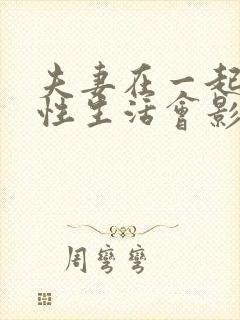 夫妻在一起
性生活會影
周彎彎